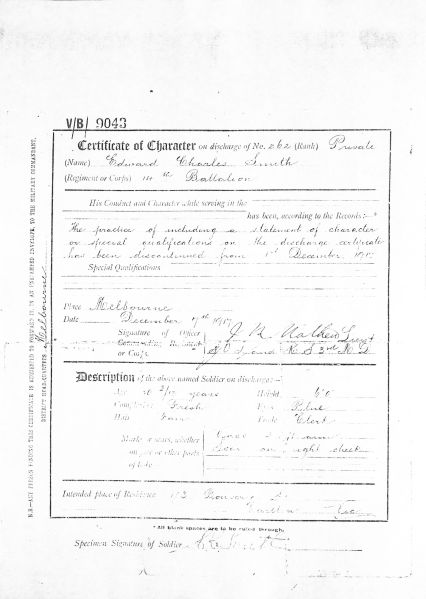 V/B/ 9043
Certificate of Character on discharge of No. 262 (Rank) Private
(Name) Edward Charles Smith
(Regiment or Corps) 14th Battalion
His Conduct and Character while serving in the
has been, according to the Records:—*
The practice of including a statement of character
or special qualifications on the discharge certificate
has been discontinued from 1st December, 1917
Special Qualifications
Place Melbourne
Date December 7th 1917
Signature of Officer
Commanding Regiment
or Corps
Description of the above named Soldier on discharge:—
Age years Height 6'0"
Complexion Fresh Eyes Blue
Hair Fair Trade Clerk
Marks or scars, whether
on face or other parts
of body
Scar on right cheek
Intended place of Residence
*All blank spaces are to be ruled through.
Specimen Signature of Soldier Smith
N.B.—ANY PERSON FINDING THIS CERTIFICATE IS REQUESTED TO FORWARD IT, IN AN UNSTAMPED ENVELOPE, TO THE MILITARY COMMANDANT,
DISTRICT HEAD-QUARTERS Melbourne